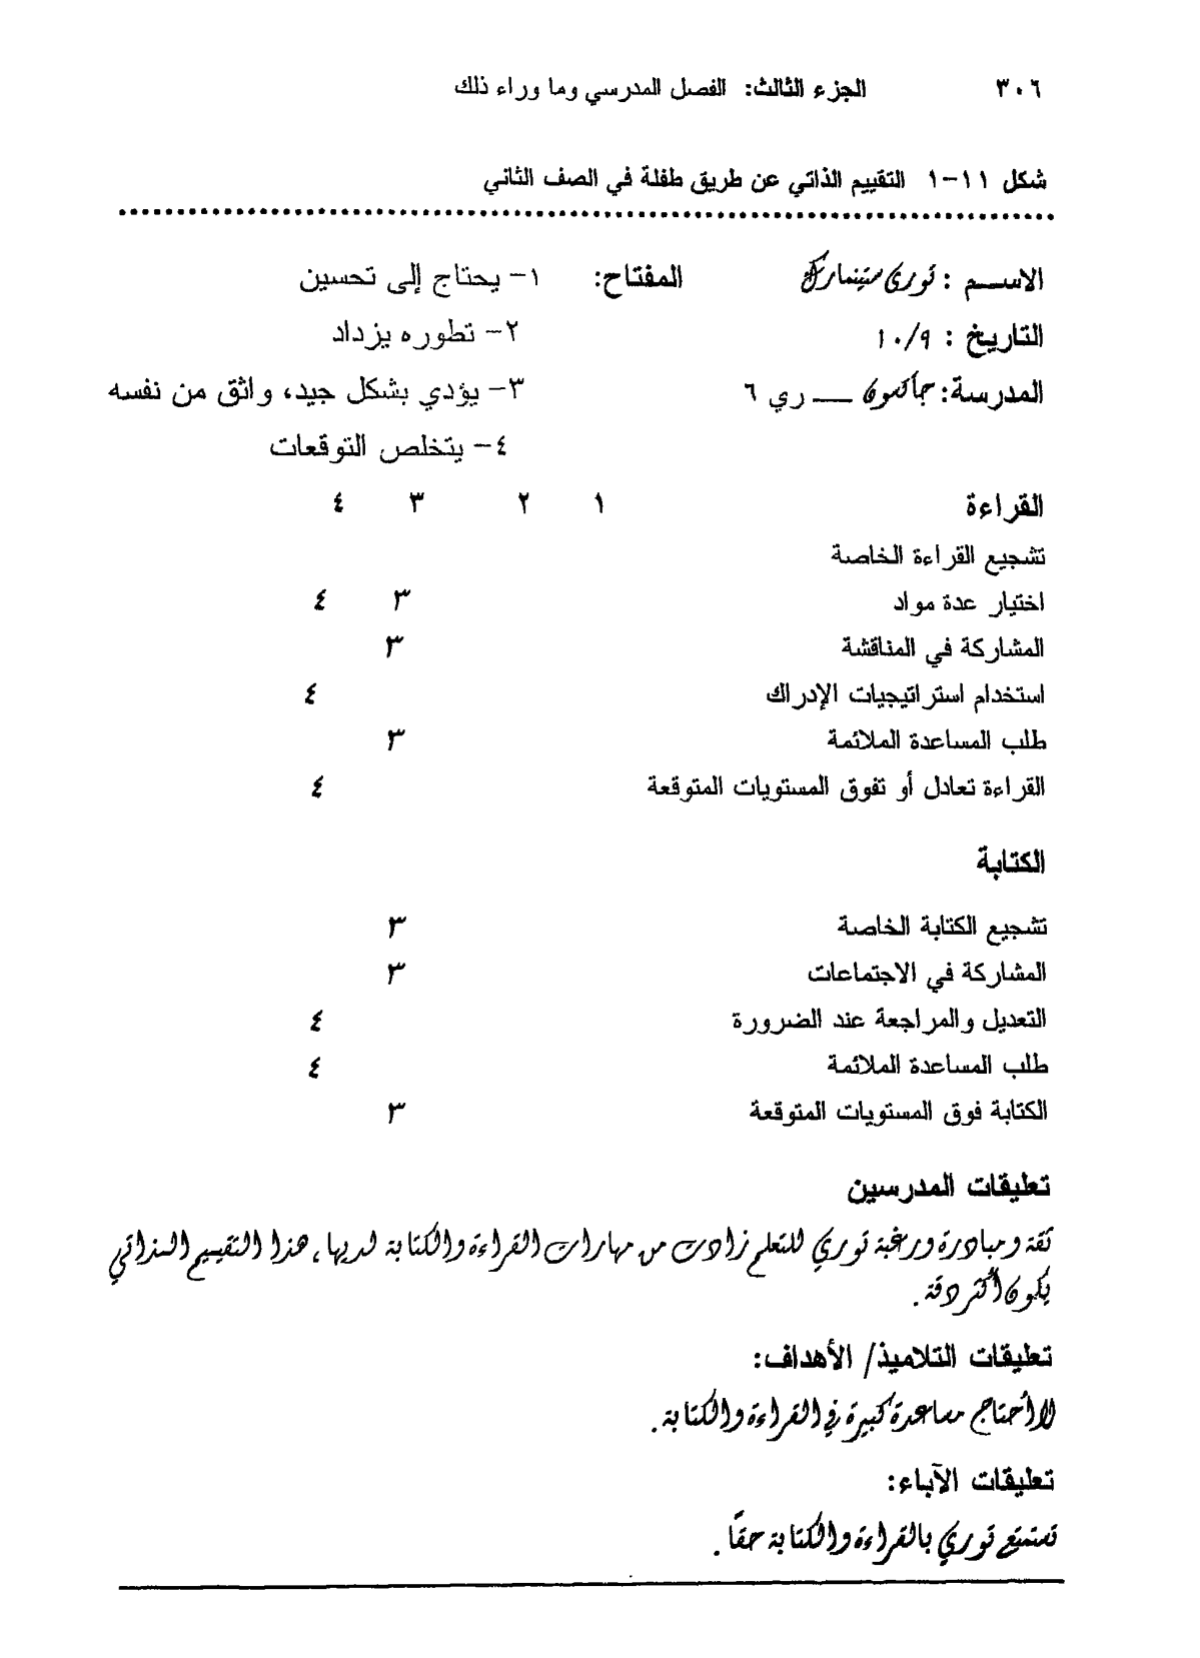 ٣٠٦ الجزء الثالث: الفصل المدرسي وما وراء ذلك
شكل ١١-١ التقييم الذاتي عن طريق طفلة في الصف الثاني
الاســم : توري ستينمارك المفتاح: ١- يحتاج إلى تحسين
التاريخ : ١٠/٩ ٢- تطوره يزداد
المدرسة: جاكسون — ري ٦ ٣- يؤدي بشكل جيد، واثق من نفسه
٤- يتخلص التوقعات
القراءة ١ ٢ ٣ ٤
تشجيع القراءة الخاصة
اختيار عدة مواد ٣ ٤
المشاركة في المناقشة ٣
استخدام استراتيجيات الإدراك ٤
طلب المساعدة الملائمة ٣
القراءة تعادل أو تفوق المستويات المتوقعة ٤
الكتابة
تشجيع الكتابة الخاصة ٣
المشاركة في الاجتماعات ٣
التعديل والمراجعة عند الضرورة ٤
طلب المساعدة الملائمة ٤
الكتابة فوق المستويات المتوقعة ٣
تعليقات المدرسين
ثقة ومبادرة ورغبة توري للتعلم زادت من مهارات القراءة والكتابة لديها، هذا التقييم الذاتي
يكون أكثر دقة.
تعليقات التلاميذ/ الأهداف:
لا أحتاج مساعدة كبيرة في القراءة والكتابة.
تعليقات الآباء:
تستمتع توري بالقراءة والكتابة حقًا.